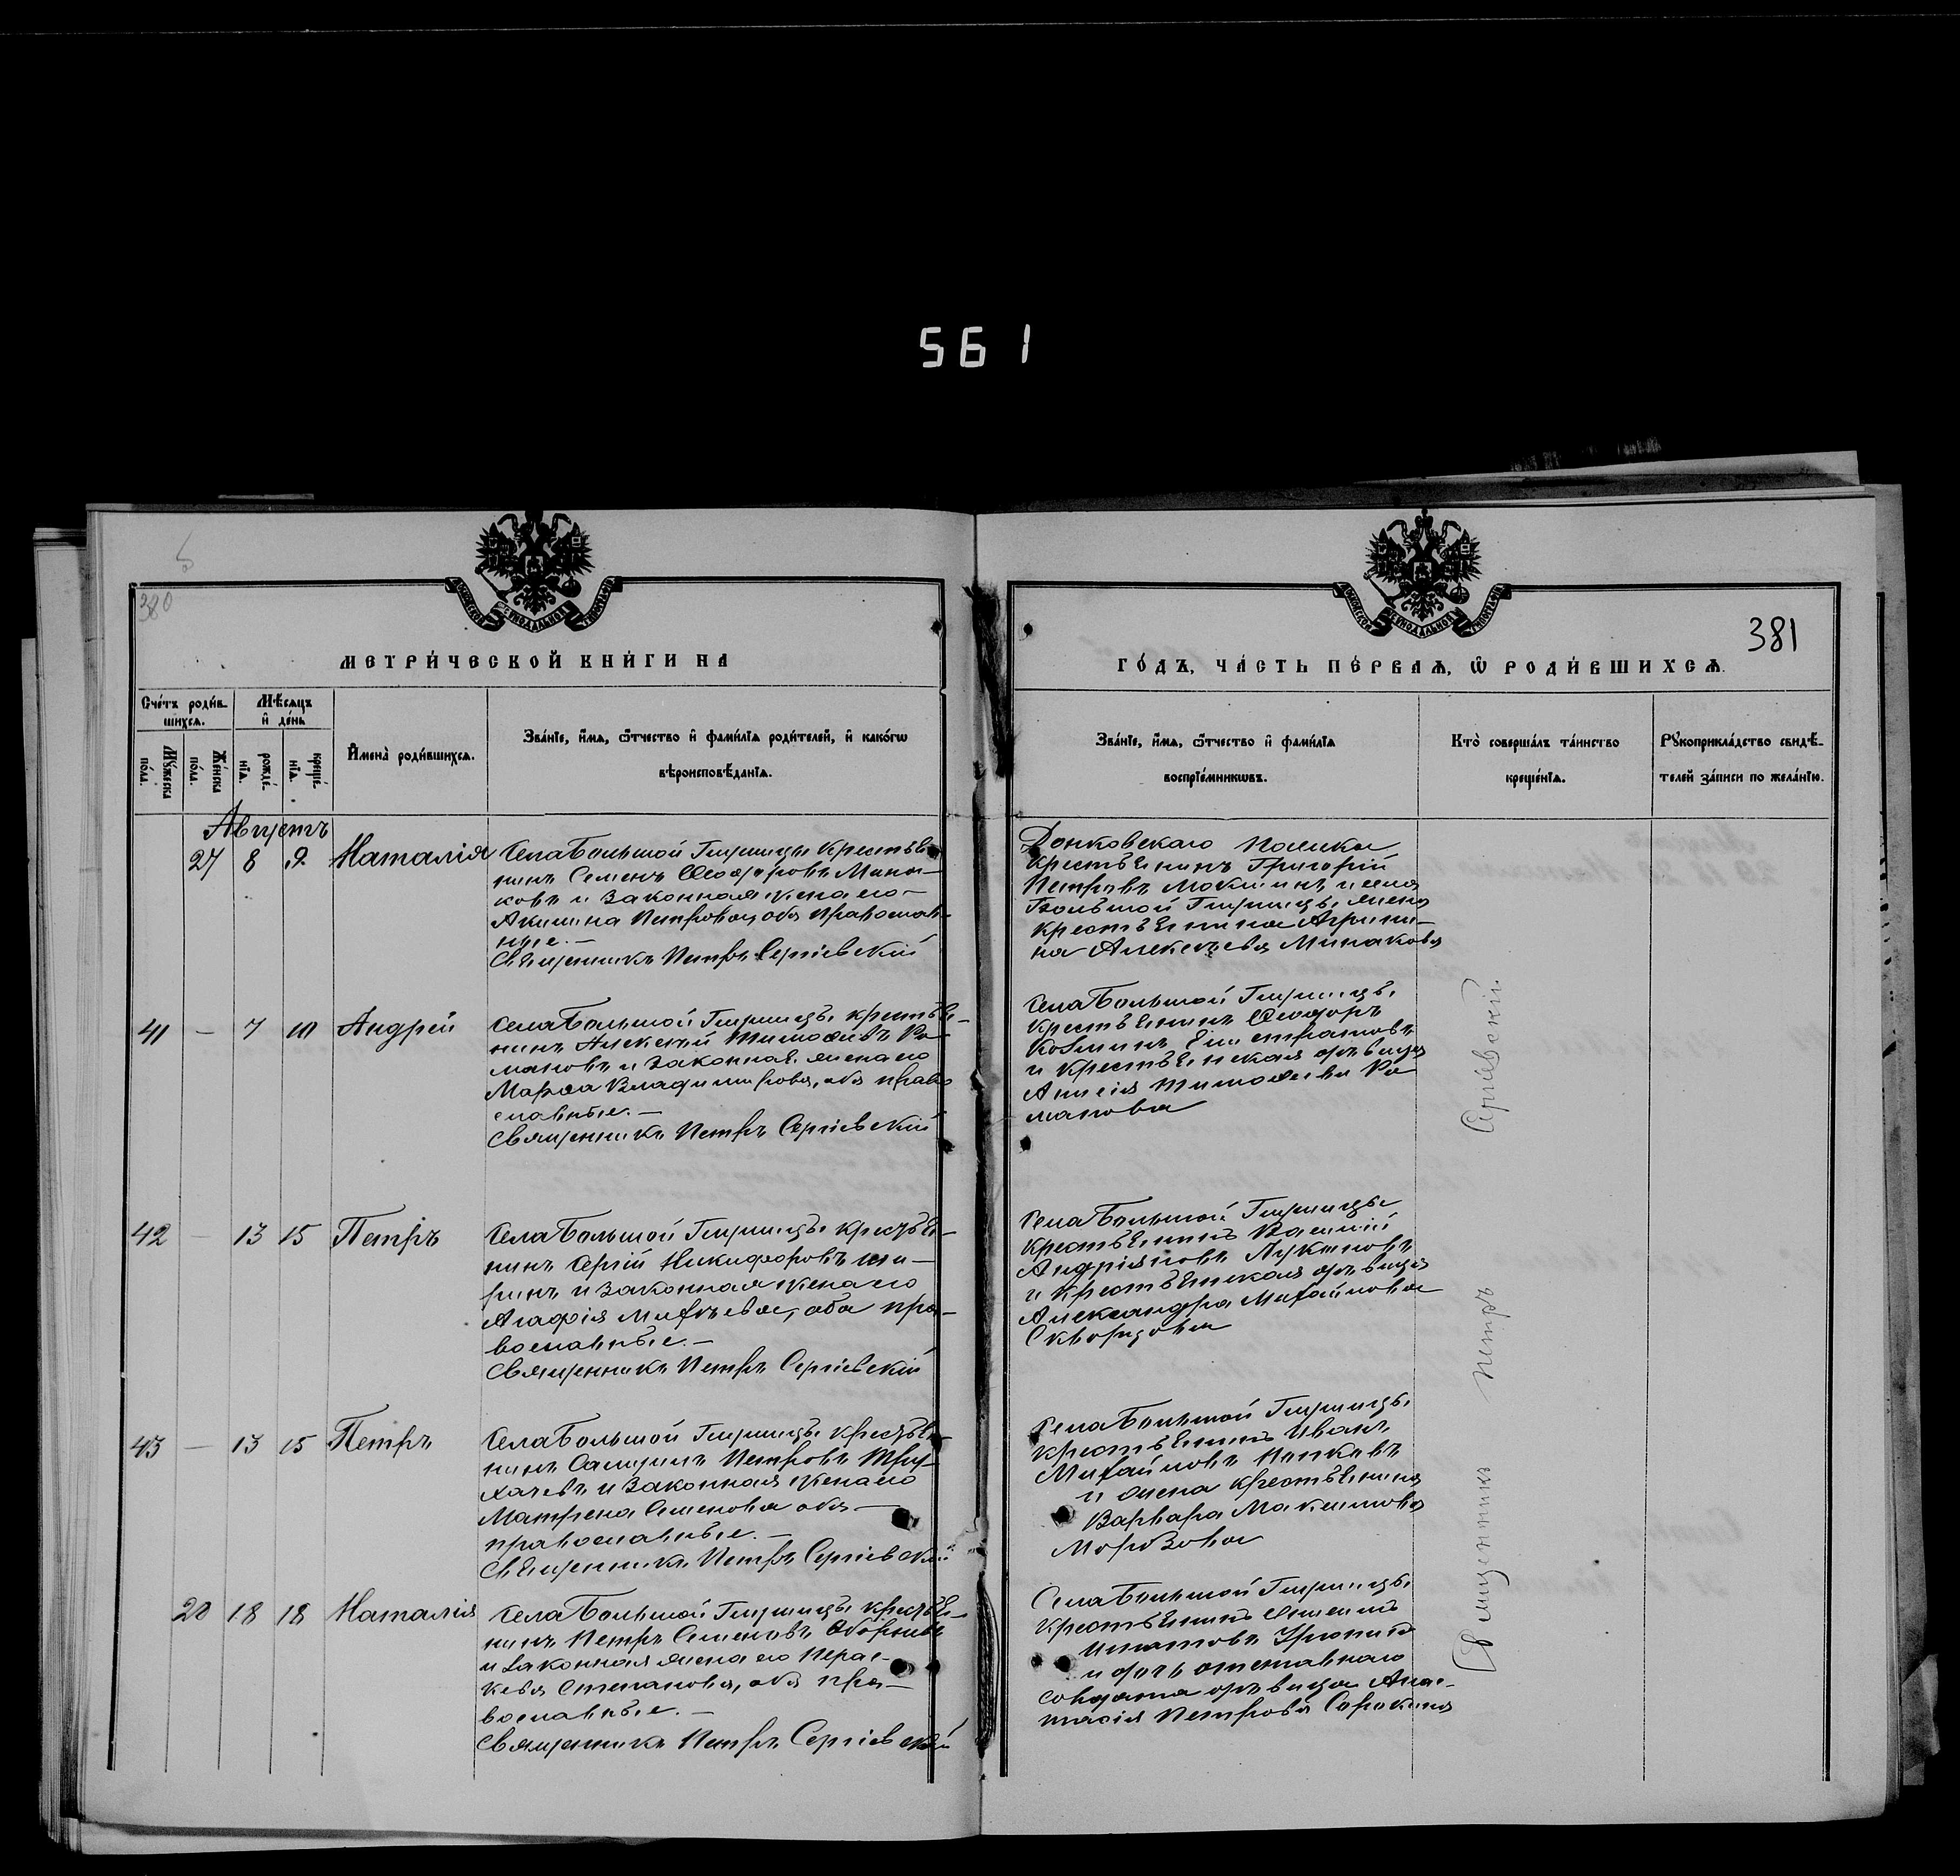 561
380
МЕТРИЧЕСКОЙ КНИГИ НА
Счетъ родив-
шихся.
Мѣсяцъ
и день
Мужеска
пола.
Женска
пола.
рожде-
нія.
креще-
нія.
Имена родившихся.
Званіе, имя, отчество и фамилія родителей, и какогѡ
вѣроисповѣданія.
Августъ
27 8 9 Наталія
Села Большой Грѣ крестья-
нинъ Семенъ Ѳеодоровъ Мина-
ковъ и законная жена его
Акилина Петрова, оба православ-
ные.—
Священникъ Петръ Сергіевскій
41 — 7 10 Андрей
Села Большой крестья-
нинъ Алексѣй Тимоѳеевъ Ро-
мановъ и законная жена его
Марѳа Владимирова, оба право-
славные.—
Священникъ Петръ Сергіевскій
42 — 13 15 Петръ
Села Большой крестья-
нинъ Сергій Никифоровъ
и законная жена его
Агафія Михѣева, оба пра-
вославные.—
Священникъ Петръ Сергіевскій
43 — 13 15 Петръ
Села Большой крестья-
нинъ Петровъ
и законная жена его
Матрена Семенова оба—
православные.—
Священникъ Петръ Сергіевскій
28 18 18 Наталія
Села Большой крестья-
нинъ Петръ Семеновъ
и законная жена его Парас-
кева Степанова, оба пра-
вославные.—
Священникъ Петръ Сергіевскій
381
ГОДЪ, ЧАСТЬ ПЕРВАЯ, Ѡ РОДИВШИХСЯ.
Званіе, имя, отчество и фамилія
воспріемникѡвъ.
Кто совершалъ таинство
крещенія.
Рукоприкладство свидѣ-
телей записи по желанію.
Донковскаго
крестьянинъ Григорій
Петровъ и села
Большой жена
крестьянина Агрипи-
на Алексѣева Минакова
Села Большой
крестьянинъ Ѳеодоръ
Козминъ
и крестьянская дѣвица
Анисія Тимоѳеева Ро-
манова
Села Большой
крестьянинъ Василій
Андріяновъ
и крестьянская дѣвица
Александра Михайлова
Скворцова
Села Большой
крестьянинъ Иванъ
Михайловъ
и жена крестьянина
Варвара Максимова
Морозова
Села Большой
крестьянинъ
и дочь отставнаго
солдата дѣвица Анас-
тасія Петрова Сорокина
Священникъ Петръ Сергіевскій